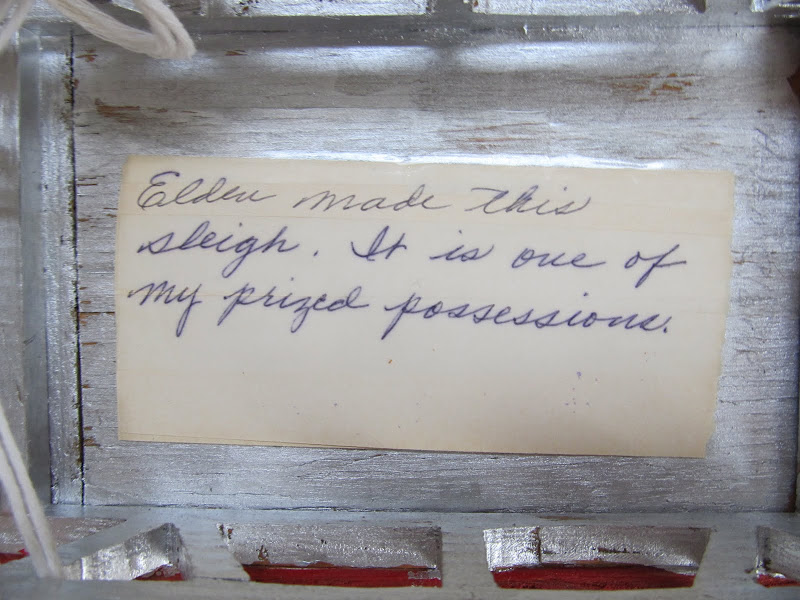 Elden made this
sleigh. It is one of
my prized possessions.